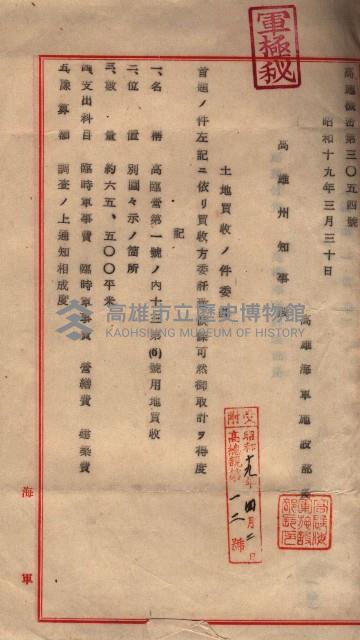 軍極秘
高施機密第三〇五四號
昭和十九年三月三十日
高雄海軍施設部長
高雄州知事殿
土地買收ノ件委託
首題ノ件左記ニ依リ買收方委託致度候條可然御取計ヲ得度
記
一、名稱 高臨營第一號ノ內十三第(6)號用地買收
二、位置 別圖々示ノ箇所
三、數量 約六五、五〇〇平米
四、支出科目 臨時軍事費 臨時軍事費 營繕費 建築費
五、豫算額 調査ノ上通知相成度
高雄市立歷史博物館
KAOHSIUNG MUSEUM OF HISTORY
昭和十九年四月二日
一二號
海軍